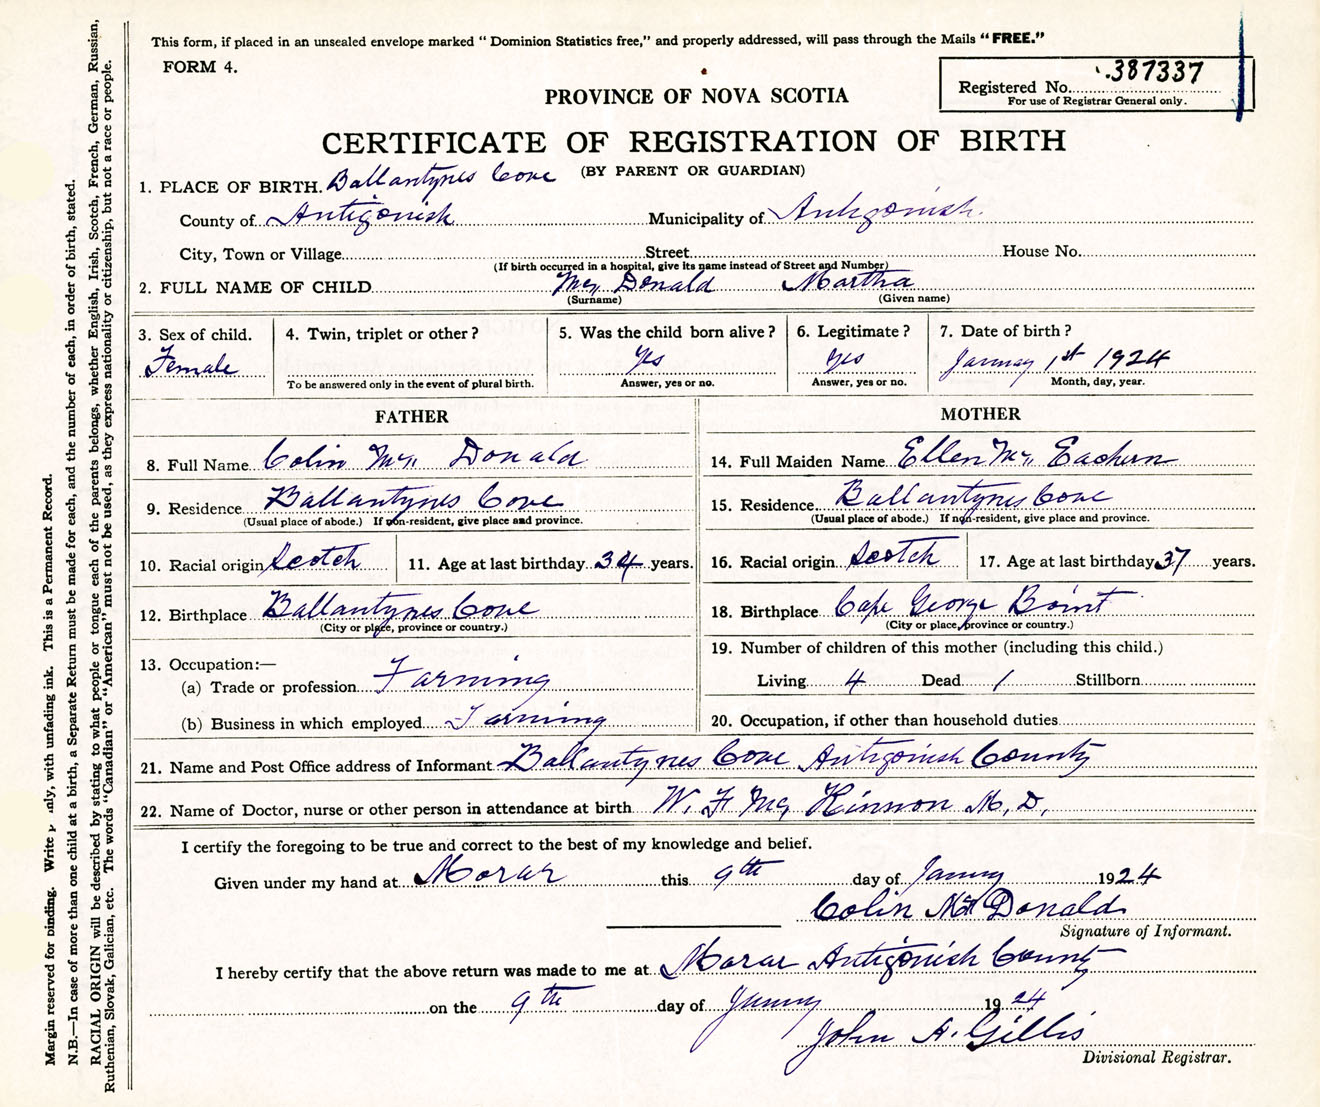 This form, if placed in an unsealed envelope marked "Dominion Statistics free," and properly addressed, will pass through the Mails "FREE."
FORM 4.
Registered No. 387337
For use of Registrar General only.
PROVINCE OF NOVA SCOTIA
CERTIFICATE OF REGISTRATION OF BIRTH
(BY PARENT OR GUARDIAN)
1. PLACE OF BIRTH. Ballantynes Cove
County of Antigonish Municipality of Antigonish
City, Town or Village Street House No.
(If birth occurred in a hospital, give its name instead of Street and Number)
2. FULL NAME OF CHILD Mc Donald Martha
(Surname) (Given name)
3. Sex of child. 4. Twin, triplet or other? 5. Was the child born alive? 6. Legitimate? 7. Date of birth?
Female Yes Yes January 1st 1924
To be answered only in the event of plural birth. Answer, yes or no. Answer, yes or no. Month, day, year.
FATHER
8. Full Name Colin Mc Donald
9. Residence Ballantynes Cove
(Usual place of abode.) If non-resident, give place and province.
10. Racial origin Scotch 11. Age at last birthday 34 years.
12. Birthplace Ballantynes Cove
(City or place, province or country.)
13. Occupation:—
(a) Trade or profession Farming
(b) Business in which employed Farming
MOTHER
14. Full Maiden Name Ellen Mc Eachern
15. Residence Ballantynes Cove
(Usual place of abode.) If non-resident, give place and province.
16. Racial origin Scotch 17. Age at last birthday 37 years.
18. Birthplace Cape George Point
(City or place, province or country.)
19. Number of children of this mother (including this child.)
Living 4 Dead 1 Stillborn
20. Occupation, if other than household duties
21. Name and Post Office address of Informant Ballantynes Cove Antigonish County
22. Name of Doctor, nurse or other person in attendance at birth W. F. Mc Kinnon M. D.
I certify the foregoing to be true and correct to the best of my knowledge and belief.
Given under my hand at Morar this 9th day of January 1924
Colin Mc Donald
Signature of Informant.
I hereby certify that the above return was made to me at Morar Antigonish County
on the 9th day of January 1924
John A. Gillis
Divisional Registrar.
Margin reserved for binding. Write plainly, with unfading ink. This is a Permanent Record.
N.B.—In case of more than one child at a birth, a Separate Return must be made for each, and the number of each, in order of birth, stated.
RACIAL ORIGIN will be described by stating to what people or tongue each of the parents belongs, whether English, Irish, Scotch, French, German, Russian,
Ruthenian, Slovak, Galician, etc. The words "Canadian" or "American" must not be used, as they express nationality or citizenship, but not a race or people.